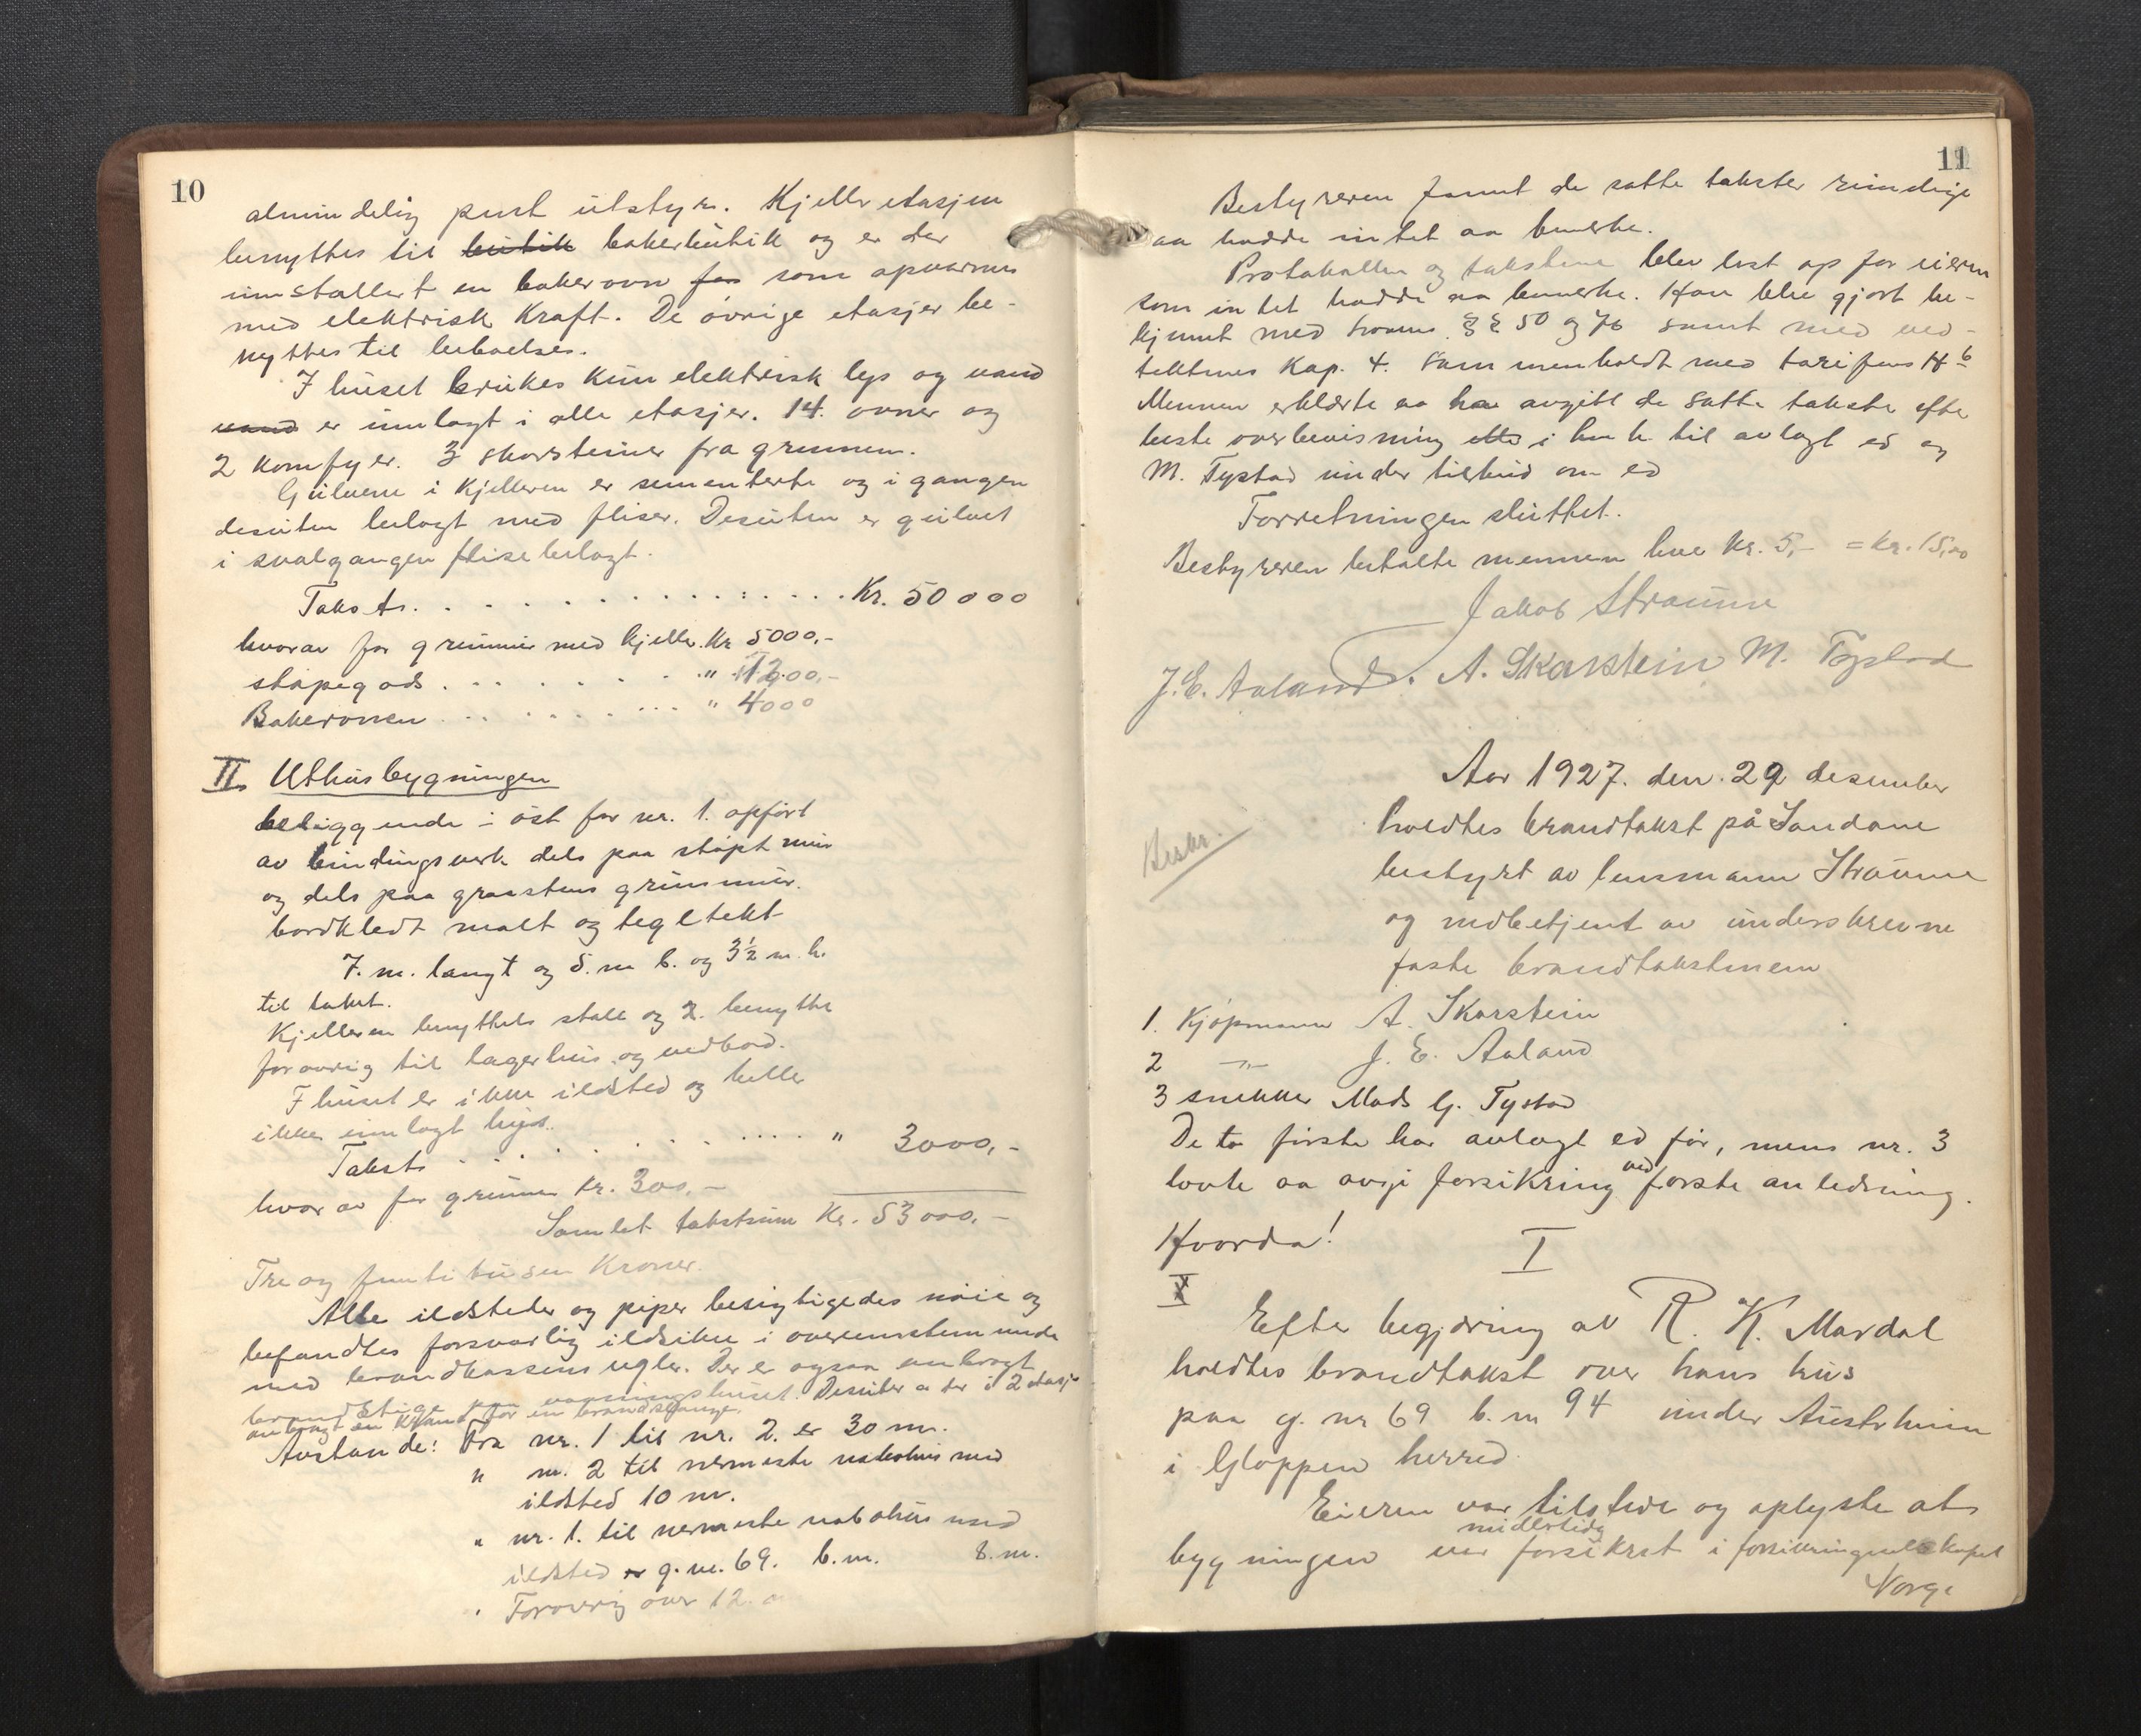 10
almindelig pust utstyr. Kjelleretasjen
benyttes til butik bakerbutik og er der
innstallert en bakerovn for som opvarmes
med elektrisk Kraft. De övrige etasjer be-
nyttes til beboelse.
I huset brukes kun elektrisk lys og vand
vand er innlagt i alle etasjer. 14. ovner og
2 komfyer. 3 skorsteiner fra grunnen.
Gulvene i kjelleren er sementerte og i gangen
desuten belagt med fliser. Desuten er gulvet
i svalgangen flisebelagt.
Takst. . . . . . . . . . . . . . . Kr. 50000
hvorav for grunnmur med kjeller. Kr 5000,-
støpegods . . . . . . . . . " 1200,-
Bakerovnen . . . . . . . . . " 4000
II. Uthusbygningen
beliggende i öst for nr. 1. opfört
av bindingsverk dels paa støpt mur
og dels paa graastens grunnmur.
bordkledt malt og tegltekt
7. m. langt og 5. m b. og 3½ m. h.
til taket.
Kjelleren benyttes stall og 2. benyttes
forøvrig til lagerhus og vedbod.
I huset er ikke ildsted og heller
ikke innlagt lys.
Takst . . . . . . . . . " 3000,-
hvorav for grunnmur kr. 300,-
Samlet takstsum Kr. 53000,-
Tre og femti tusen Kroner.
Alle ildsteder og piper besigtigedes nøie og
befandtes forsvarlig ildsikre i overensstemmende
med brandkassens regler. Der er ogsaa anbragt
brandstige paa vaaningshuset. Desuten er der i 2 etasje
anbragt en Kran for en brandslange.
Avstande: Fra nr. 1 til nr. 2. er 30 m.
" nr. 2 til nærmeste nabohus med
ildsted 10 m.
" nr. 1. til nærmeste nabohus med
ildsted er g. nr. 69. b. nr. 8. m.
" Forøvrig over 12.
11
Bestyreren fannt de satte takster rimelige
aa hadde intet aa bemerke.
Protokollen og takstene blev lest op for eieren
som intet hadde aa bemerke. Han blev gjort be-
kjennt med lovens §§ 50 og 76 samt med ved-
tektenes Kap. 4. sammenholdt med tarifens H 6
Mennene erklærte aa ha avgitt de satte takster efter
beste overbevisning etter i hen h. til avlagt ed og
M. Tystad under tilbud om ed
Forretningen sluttet.
Bestyreren betalte mennene hver kr. 5,- = kr. 15,00
Jakob Straume
J. E. Aaland. A. Skarstein M. Tystad
Aar 1927. den. 29 desember
Beskr.
holdtes brandtakst på Sandane
bestyrt av lensmann Straume
og medbetjent av underskrevne
faste brandtakstmenn
1. Kjøpmann A. Skarstein
2 -"- J. E. Aaland
3 snekker Mads G. Tystad
De to første har avlagt ed før, mens nr. 3
lovte aa avgi forsikring ved første anledning.
Hvorda!
I
Efter begjæring av R. K. Mardal
holdtes brandtakst over hans hus
paa g. nr 69 b. nr 94 under Austrheim
i Gloppen herred
Eieren var tilstede og oplyste at
midlertidig
bygningen var forsikret i forsikringsselskapet
Norge